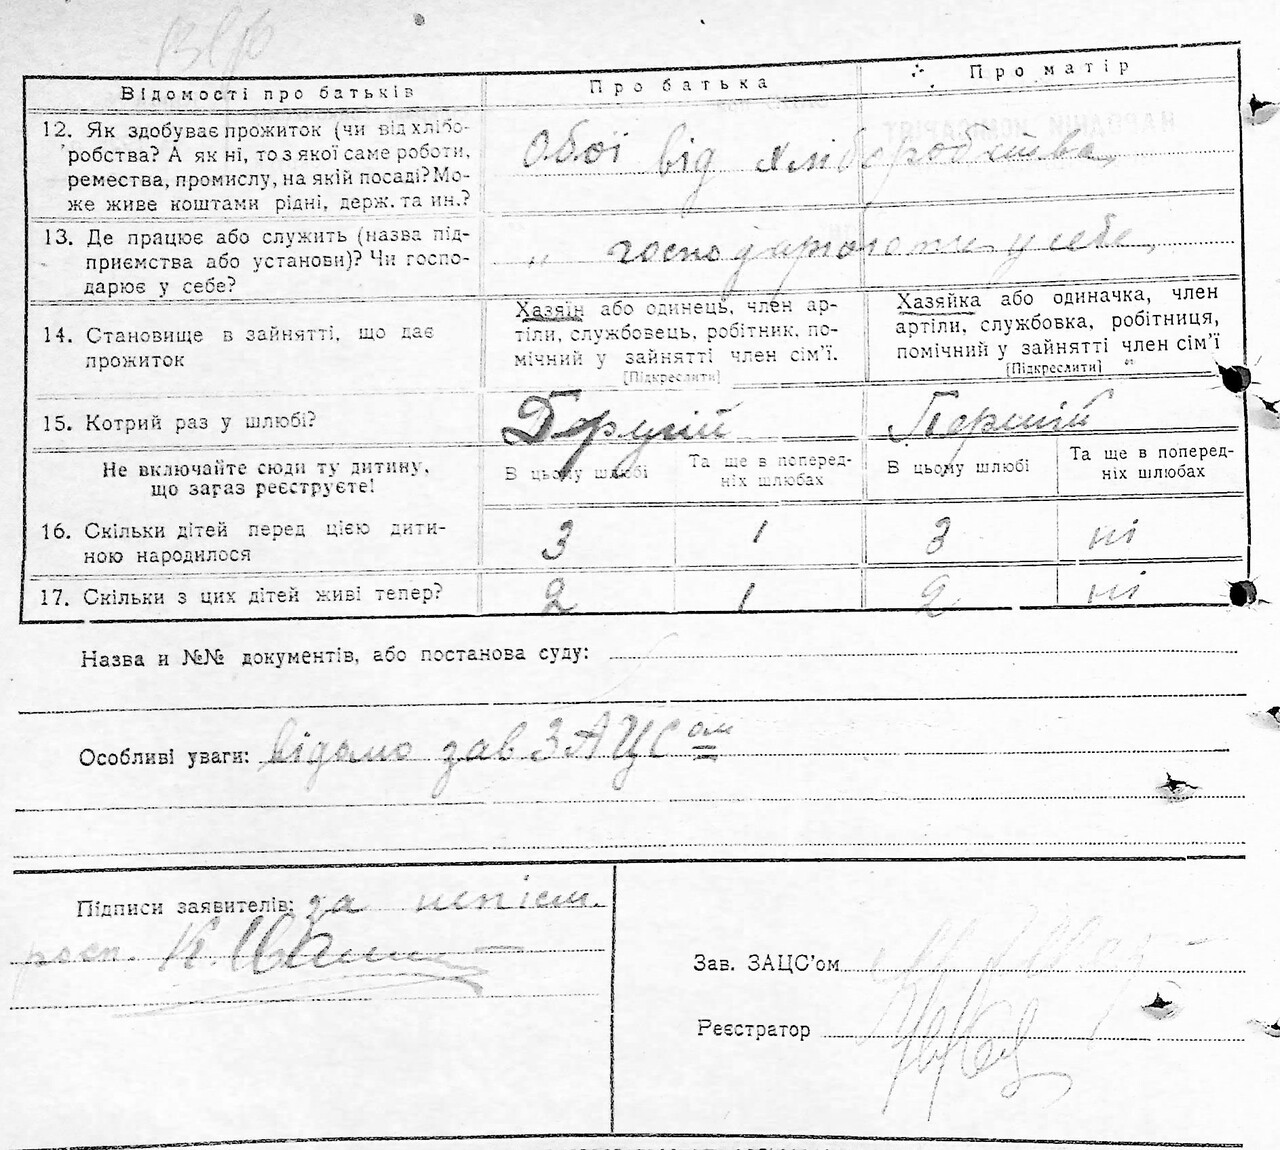 Відомості про батьків
Про батька
Про матір
12. Як здобуває прожиток (чи від хлібо-
робства? А як ні, то з якої саме роботи,
ремества, промислу, на якій посаді? Мо-
же живе коштами рідні, держ. та ин.?
Обої від хліборобства,
13. Де працює або служить (назва під-
приємства або установи)? Чи госпо-
дарює у себе?
„ господарюють у себе,
14. Становище в зайнятті, що дає
прожиток
Хазяїн або одинець, член ар-
тіли, службовець, робітник, по-
мічний у зайнятті член сім’ї.
[Підкреслити]
Хазяйка або одиначка, член
артіли, службовка, робітниця,
помічний у зайнятті член сім’ї
[Підкреслити]
15. Котрий раз у шлюбі?
Другий
Перший
Не включайте сюди ту дитину,
що зараз реєструєте!
В цьому шлюбі
Та ще в поперед-
ніх шлюбах
В цьому шлюбі
Та ще в поперед-
ніх шлюбах
16. Скільки дітей перед цією дити-
ною народилося
3 1 3 ні
17. Скільки з цих дітей живі тепер?
2 1 2 ні
Назва и №№ документів, або постанова суду:
Особливі уваги: відомо зав ЗАЦСом
Підписи заявителів: за непісм.
росп.
Зав. ЗАЦС’ом
Реєстратор